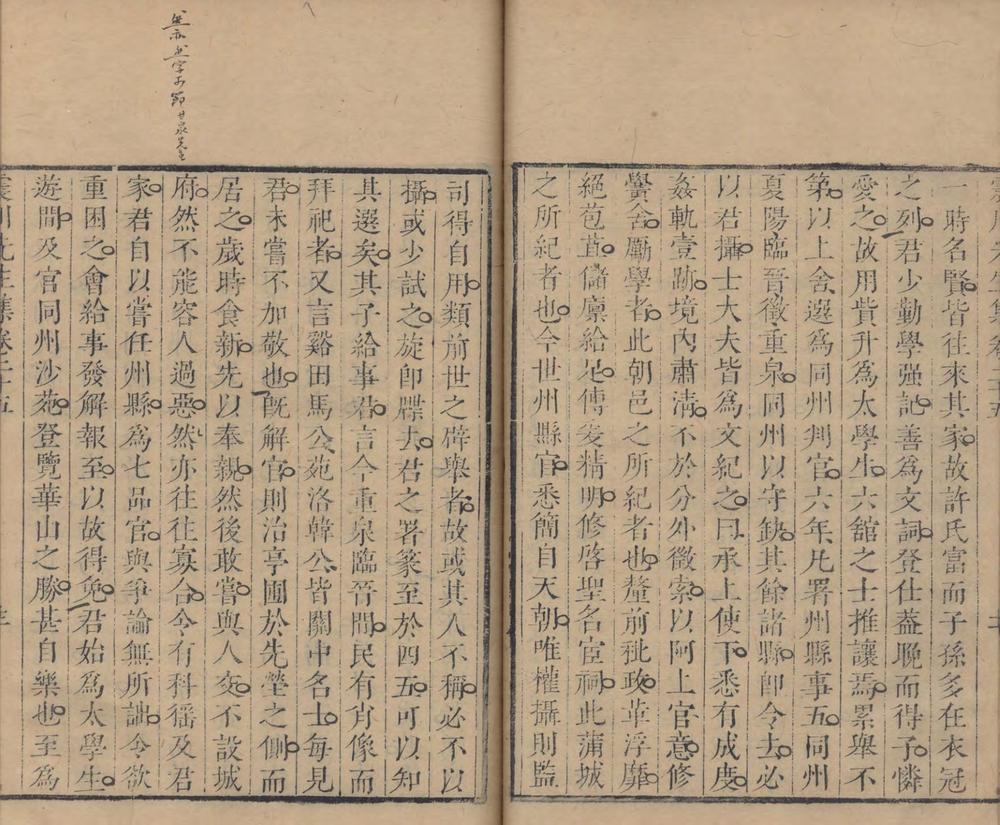 一時名賢皆往來其家故許氏富而子孫多在衣冠
之列君少勤學强記善為文詞登仕葢晚而得子憐
愛之故用貲升為太學生六舘之士推讓焉累舉不
第以上舍選為同州判官六年凢署州縣事五同州
夏陽臨晉徵重泉同州以守缺其餘諸縣即令去必
以君攝士大夫皆為文紀之曰承上使下悉有成度
姦軌壹跡境內肅清不於分外徵索以阿上官意修
黌舍勵學者此朝邑之所紀者也釐前秕政革浮靡
絕苞苴儲廪給足傳爰精明修啓聖名宦祠此蒲城
之所紀者也今世州縣官悉簡自天朝唯權攝則監
司得自用類前世之辟舉者故或其人不稱必不以
攝或少試之旋即牒去君之署篆至於四五可以知
其選矣其子給事君言今重泉臨晉間民有肖像而
拜祀者又言谿田馬公苑洛韓公皆關中名士每見
君未嘗不加敬也既解官則治亭圃於先塋之側而
居之歲時食新先以奉親然後敢嘗與人交不設城
府然不能容人過惡然亦往往寡合令有科徭及君
家君自以嘗任州縣為七品官與爭論無所詘令欲
重困之會給事發解報至以故得免君始為太學生
遊間及官同州沙苑登覽華山之勝甚自樂也至為
震川先生集卷二十五